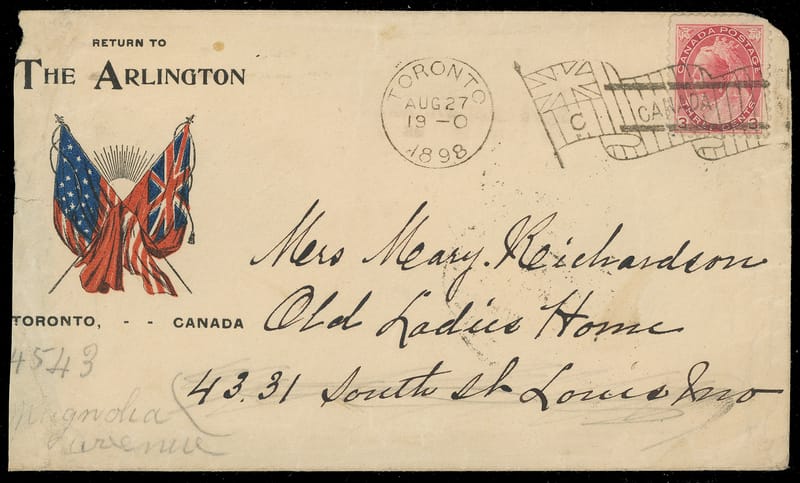 RETURN TO
THE ARLINGTON
TORONTO, - - CANADA
TORONTO
AUG 27
19 - O
1898
C
CANADA
CANADA POSTAGE
THREE CENTS
3 3
Mrs Mary. Richardson
Old Ladies Home
43.31 South st Louis Mo
4543
Magnolia
avenue